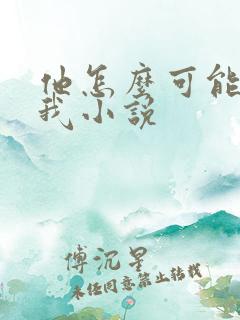 他怎麼可能
我小說
傅沉星
未经同意禁止转载